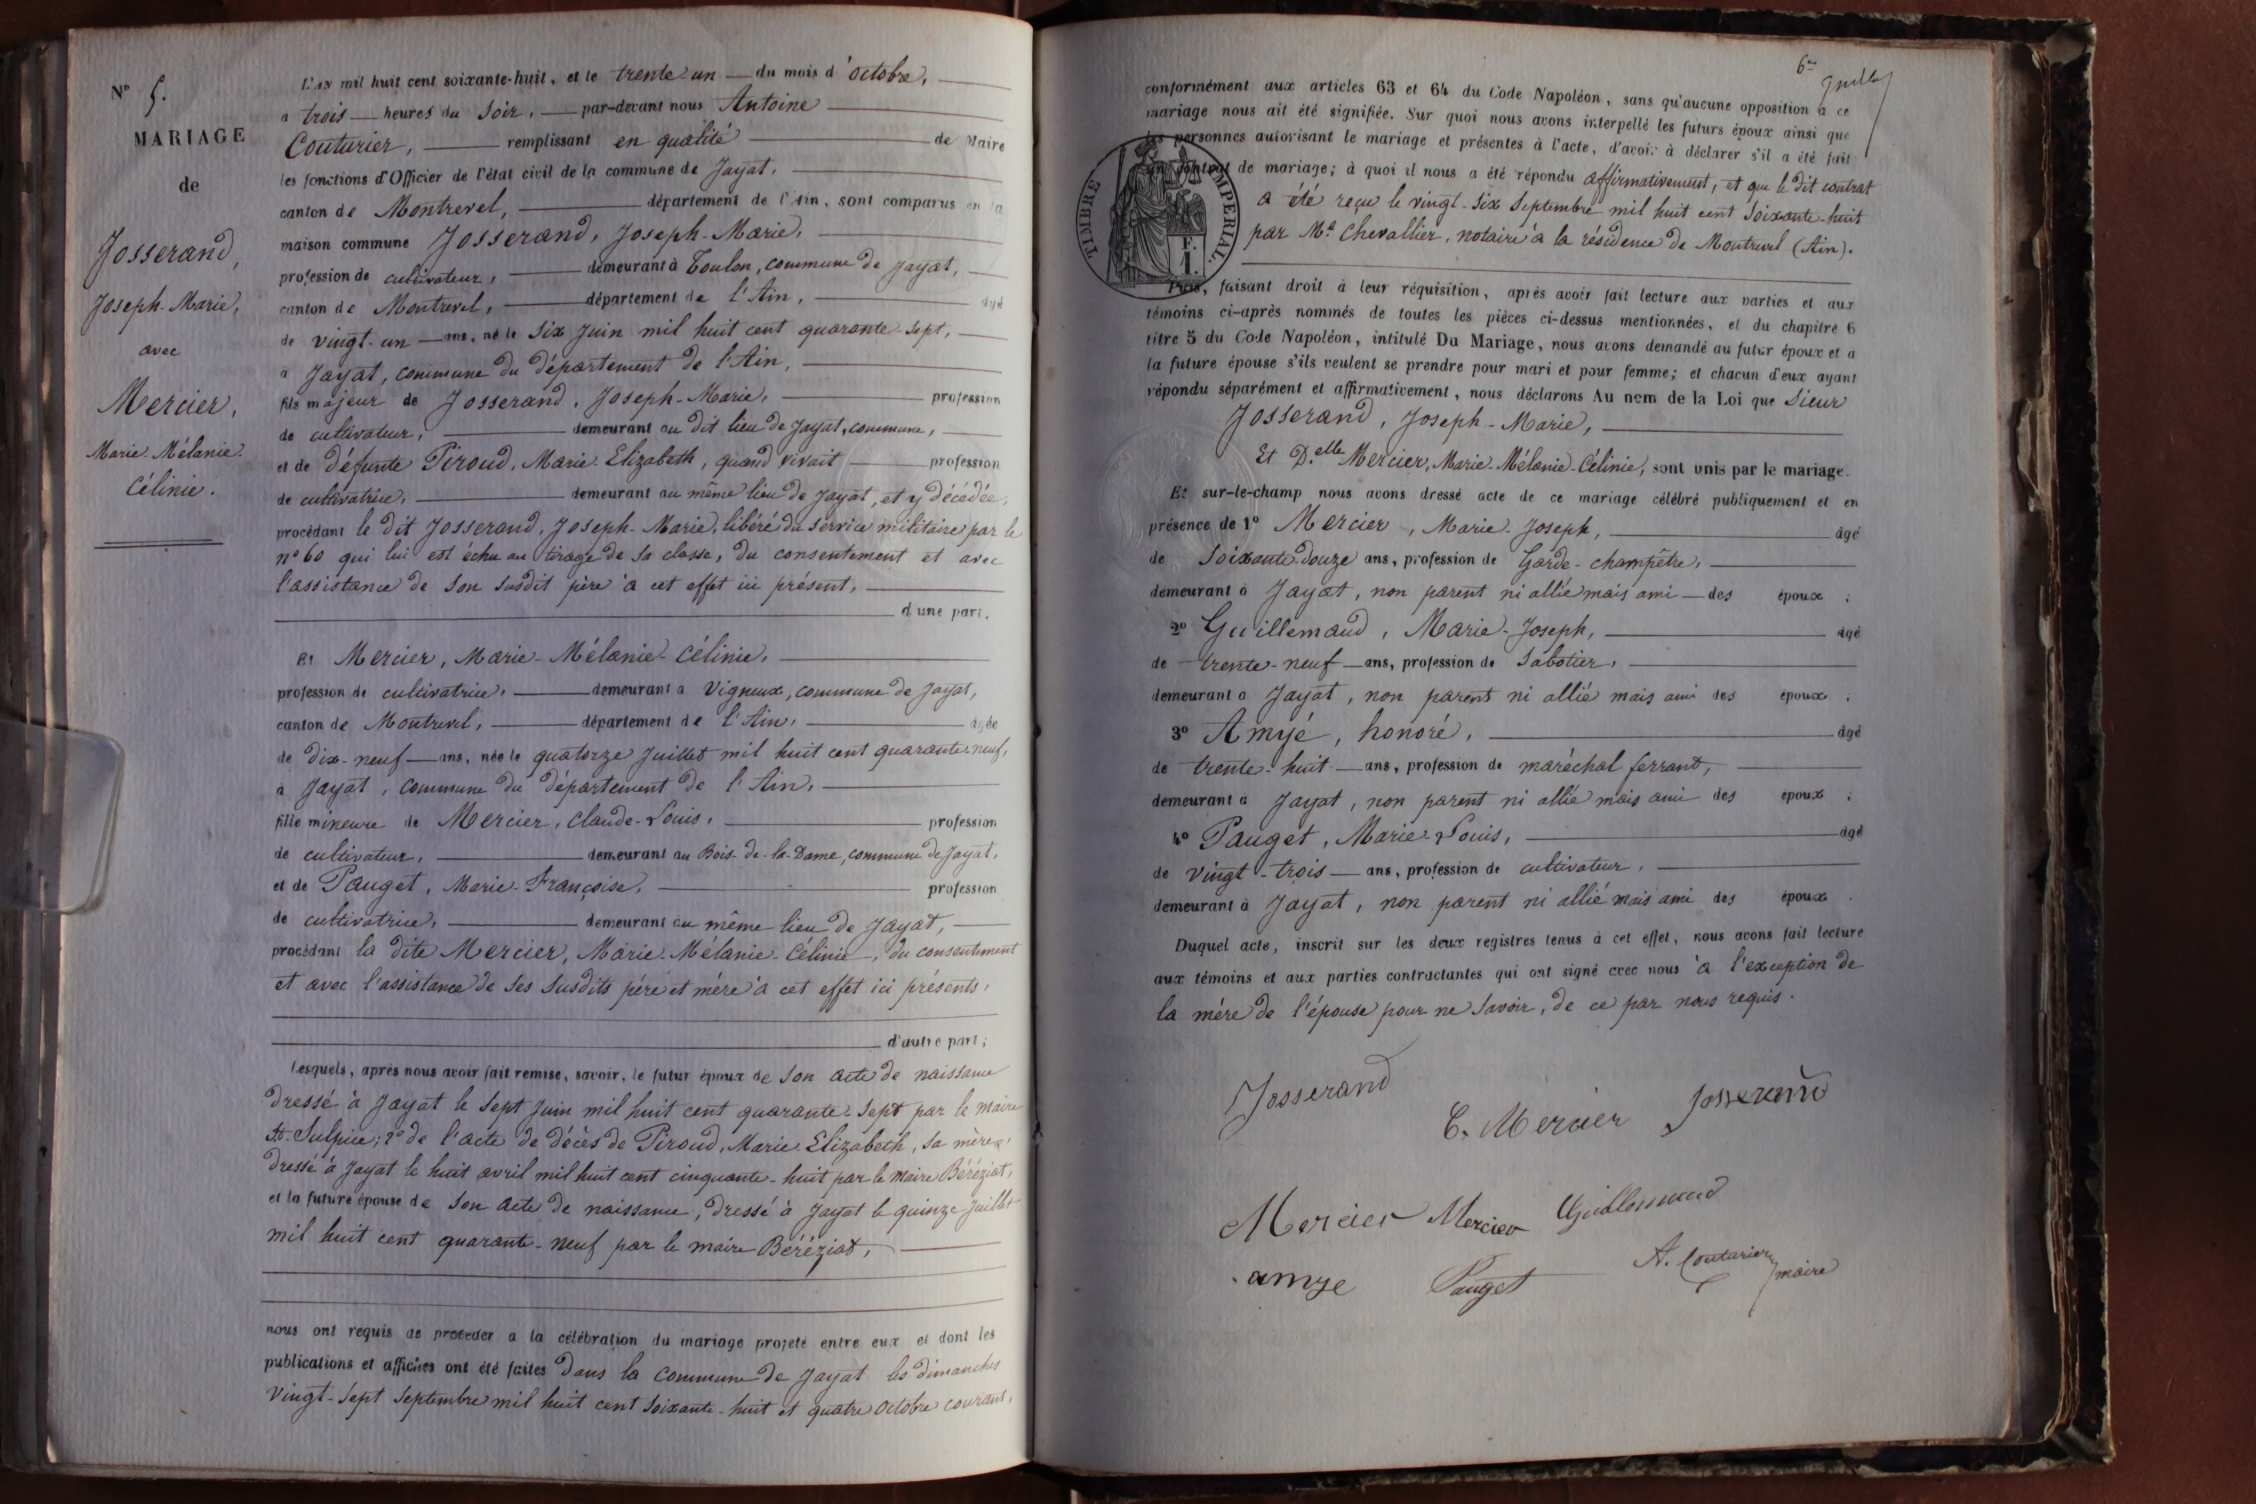 N° 5.
MARIAGE
de
Josserand,
Joseph-Marie,
avec
Mercier,
Marie-Mélanie-
Célinie.
L'AN mil huit cent soixante-huit, et le trente un du mois d'octobre,
a trois heures du soir, par-devant nous Antoine
Couturier, remplissant en qualité de Maire
les fonctions d'Officier de l'état civil de la commune de Jayat,
canton de Montrevel, département de l'Ain, sont comparus en la
maison commune Josserand, Joseph-Marie,
profession de cultivateur, demeurant à Toulon, commune de Jayat,
canton de Montrevel, département de l'Ain, âgé
de vingt-un ans, né le six juin mil huit cent quarante-sept,
à Jayat, commune du département de l'Ain,
fils majeur de Josserand, Joseph-Marie, profession
de cultivateur, demeurant au dit lieu de Jayat, commune,
et de défunte Piroud, Marie-Elizabeth, quand vivait profession
de cultivatrice, demeurant au même lieu de Jayat, et y décédée,
procédant le dit Josserand, Joseph-Marie, libéré du service militaire par le
n° 60 qui lui est échu au tirage de sa classe, du consentement et avec
l'assistance de son susdit père à cet effet ici présent,
d'une part.
Et Mercier, Marie-Mélanie-Célinie,
profession de cultivatrice, demeurant a Vigneux, commune de Jayat,
canton de Montrevel, département de l'Ain, âgée
de dix-neuf ans, née le quatorze juillet mil huit cent quarante-neuf,
à Jayat, commune du département de l'Ain,
fille mineure de Mercier, Claude-Louis, profession
de cultivateur, demeurant au Bois-de-la-Dame, commune de Jayat,
et de Pauget, Marie-Françoise, profession
de cultivatrice, demeurant au même lieu de Jayat,
procédant la dite Mercier, Marie-Mélanie-Célinie, du consentement
et avec l'assistance de ses susdits père et mère à cet effet ici présents,
d'autre part;
Lesquels, après nous avoir fait remise, savoir, le futur époux de son acte de naissance
dressé à Jayat le sept juin mil huit cent quarante-sept par le maire
St-Sulpice; 2° de l'acte de décès de Piroud, Marie-Elizabeth, sa mère,
dressé à Jayat le huit avril mil huit cent cinquante-huit par le maire Béréziat,
et la future épouse de son acte de naissance, dressé à Jayat le quinze juillet
mil huit cent quarante-neuf par le maire Béréziat,
nous ont requis de procéder a la célébration du mariage projeté entre eux et dont les
publications et affiches ont été faites dans la commune de Jayat les dimanches
vingt-sept septembre mil huit cent soixante-huit et quatre octobre courant,
conformément aux articles 63 et 64 du Code Napoléon, sans qu'aucune opposition à ce
mariage nous ait été signifiée. Sur quoi nous avons interpellé les futurs époux ainsi que
les personnes autorisant le mariage et présentes à l'acte, d'avoir à déclarer s'il a été fait
un contrat de mariage; à quoi il nous a été répondu affirmativement, et que le dit contrat
a été reçu le vingt-six septembre mil huit cent soixante-huit
par Me Chevallier, notaire à la résidence de Montrevel (Ain).
TIMBRE IMPERIAL.
F.
1.
Puis, faisant droit à leur réquisition, après avoir fait lecture aux parties et aux
témoins ci-après nommés de toutes les pièces ci-dessus mentionnées, et du chapitre 6
titre 5 du Code Napoléon, intitulé Du Mariage, nous avons demandé au futur époux et a
la future épouse s'ils veulent se prendre pour mari et pour femme; et chacun d'eux ayant
répondu séparément et affirmativement, nous déclarons Au nom de la Loi que sieur
Josserand, Joseph-Marie,
Et D.elle Mercier, Marie-Mélanie-Célinie, sont unis par le mariage.
Et sur-le-champ nous avons dressé acte de ce mariage célébré publiquement et en
présence de 1° Mercier, Marie-Joseph, âgé
de soixante-douze ans, profession de Garde-champêtre,
demeurant à Jayat, non parent ni allié mais ami des époux ;
2° Guillemaud, Marie-Joseph, âgé
de trente-neuf ans, profession de sabotier,
demeurant a Jayat, non parent ni allié mais ami des époux ;
3° Amyé, honoré, âgé
de trente-huit ans, profession de maréchal ferrant,
demeurant a Jayat, non parent ni allié mais ami des époux ;
4° Pauget, Marie-Louis, âgé
de vingt-trois ans, profession de cultivateur,
demeurant à Jayat, non parent ni allié mais ami des époux .
Duquel acte, inscrit sur les deux registres tenus à cet effet, nous avons fait lecture
aux témoins et aux parties contractantes qui ont signé avec nous à l'exception de
la mère de l'épouse pour ne savoir, de ce par nous requis.
Josserand
C. Mercier
Josserand
Mercier
Mercier
Guillemaud
amye
Pauget
A. Couturier
maire